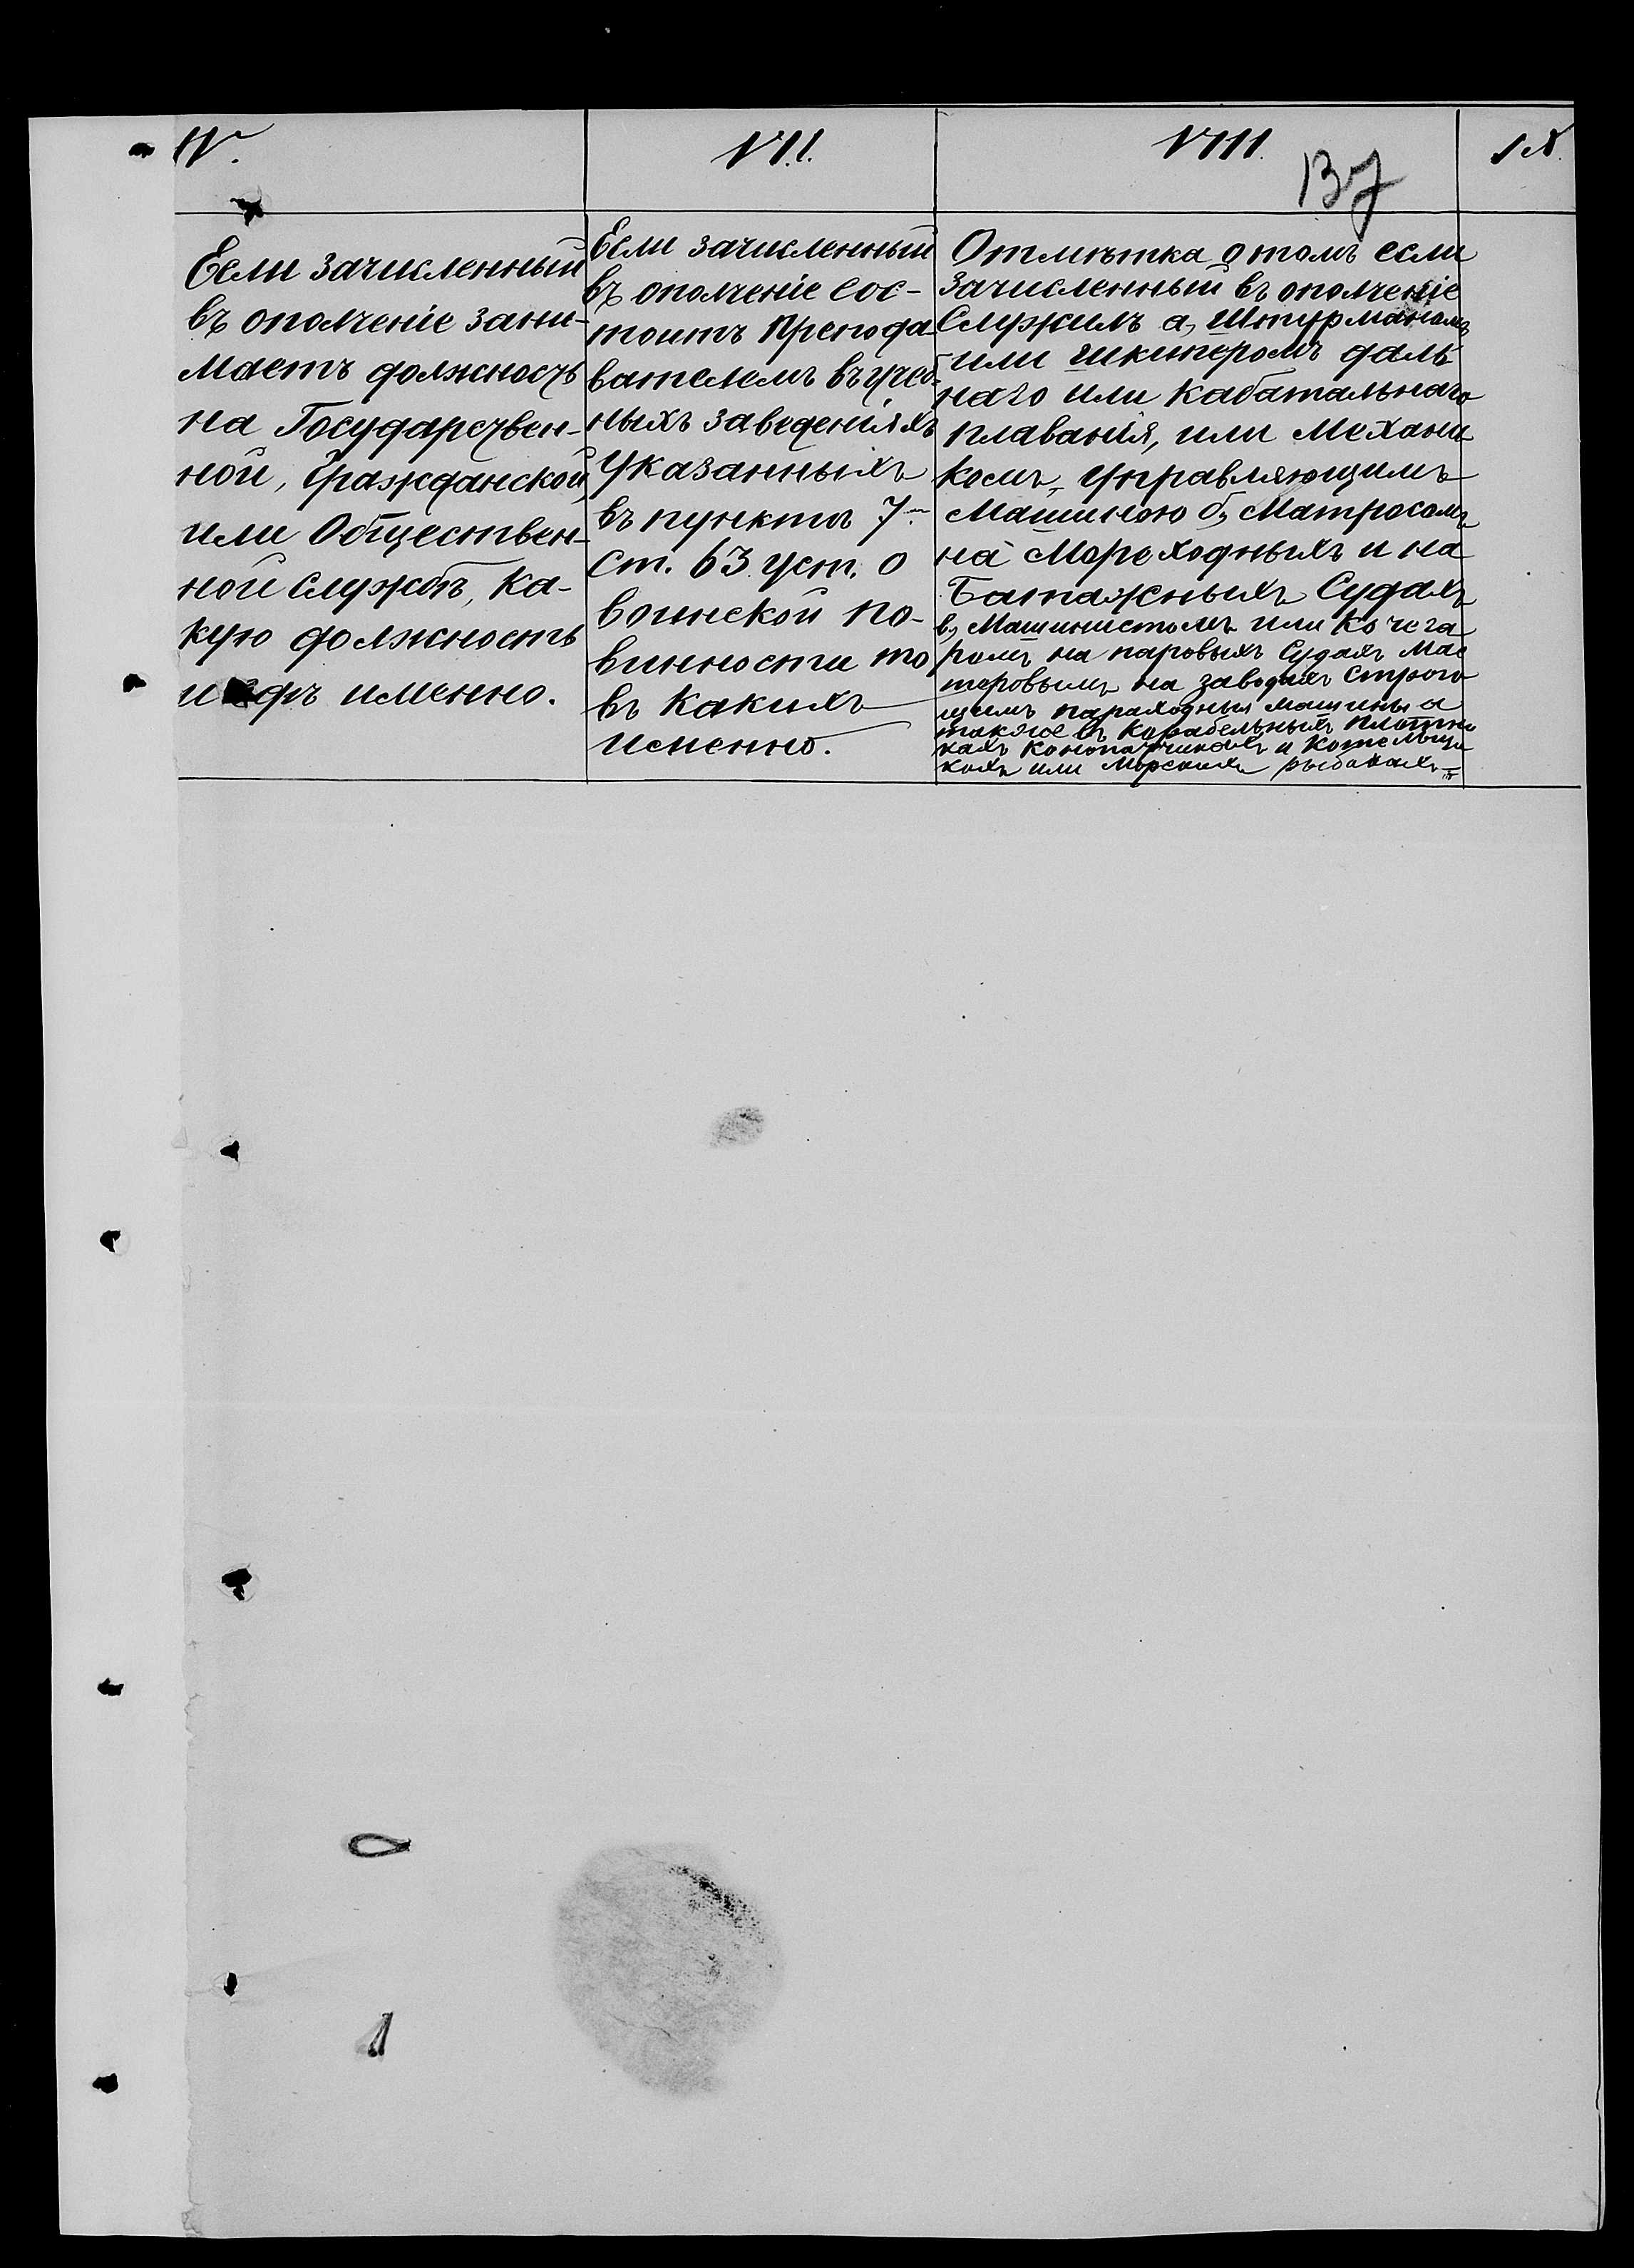 IV.
VII.
VIII.
137
IX.
Если зачисленный
въ ополченіе зани-
маетъ должность
на Государствен-
ной, Гражданской
или Обществен-
ной службѣ, ка-
кую должность
и гдѣ именно.
Если зачисленный
въ ополченіе сос-
тоитъ препода-
вателемъ въ учеб-
ныхъ заведеніяхъ
указанныхъ
въ пунктѣ 7-
ст. 63 уст. о
воинской по-
винности то
въ какихъ
именно.
Отмѣтка о томъ если
зачисленный въ ополченіе
служилъ а, Штурманомъ
или шкиперомъ даль
наго или кабатальнаго
плаванія, или механи
комъ, управляющимъ
машиною б, Матросомъ
на мореходныхъ и на
Батажныхъ судахъ
в, Машинистомъ или коче га
ромъ на паровыхъ судахъ мас
теровымъ на заводахъ строю
щемъ пароходныя машины а
также въ корабельныхъ плотни
кахъ конопатчикахъ и котельщи
кахъ или морскихъ рыбакахъ